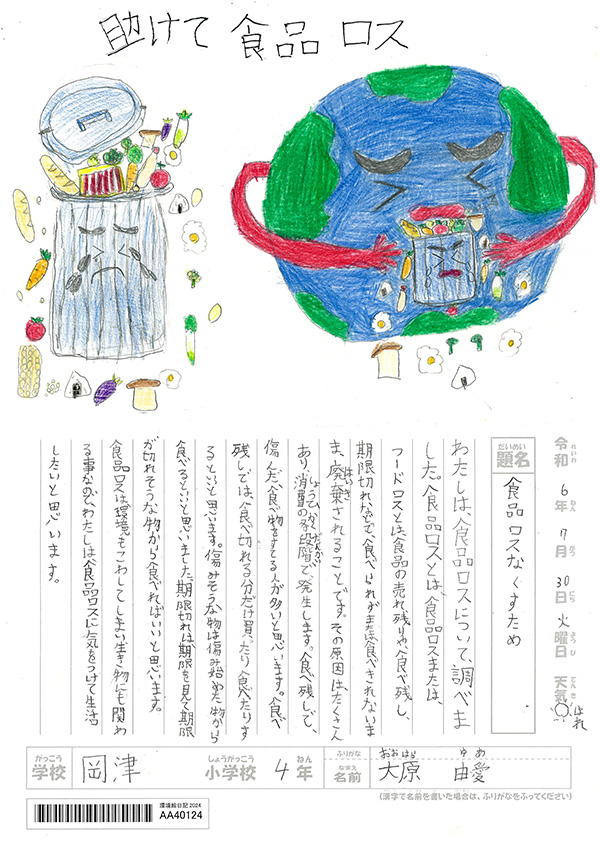 助けて 食品 ロス
令和6年7月30日火曜日 天気 はれ
れいわ ねん がつ にち ようび てんき
だいめい
題名
食品ロスなくすため
わたしは、食品ロスについて、調べま
した。食品ロスとは、食品ロスまたは、
フードロスとは、食品の売れ残りや、食べ残し、
期限切れなどで、食べられずまたは食べきれないま
ま、廃棄されることです。その原因はたくさん
はいき
あり、消費の各段階で、発生します。食べ残しで、
しょうひ かくだんかい
傷んだ、食べ物をすてる人が多いと思います。食べ
残しでは、食べ切れる分だけ買ったり、食べたりす
るといいと思います。傷みそうな物は傷み始めた物から
食べるといいと思いました。期限切れは期限を見て期限
が切れそうな物から食べればいいと思います。
食品ロスは環境もこわしてしまい生き物にも関わ
る事なのでわたしは食品ロスに気をつけて生活
したいと思います。
がっこう
学校 岡津
しょうがっこう ねん
小学校 4年
ふりがな おおはら ゆめ
なまえ
名前 大原 由愛
(漢字で名前を書いた場合は、ふりがなをふってください)
環境絵日記2024
AA40124